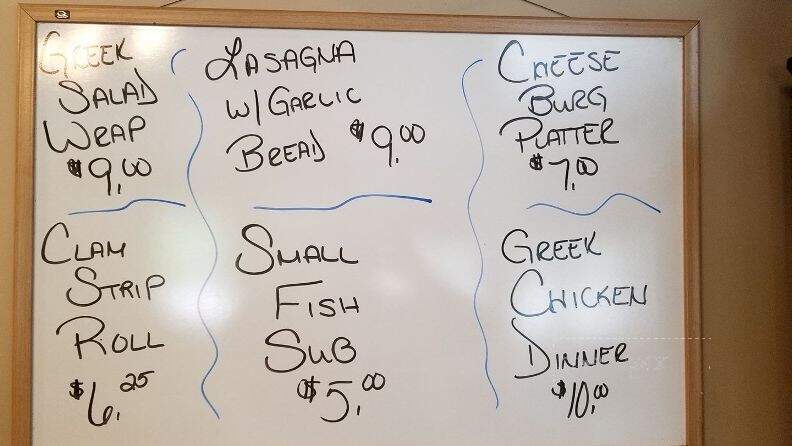 GREEK
SALAD
WRAP
$9.00
LASAGNA
W/ GARLIC
BREAD $9.00
CHEESE
BURG
PLATTER
$7.00
CLAM
STRIP
ROLL
$6.25
SMALL
FISH
SUB
$5.00
GREEK
CHICKEN
DINNER
$10.00